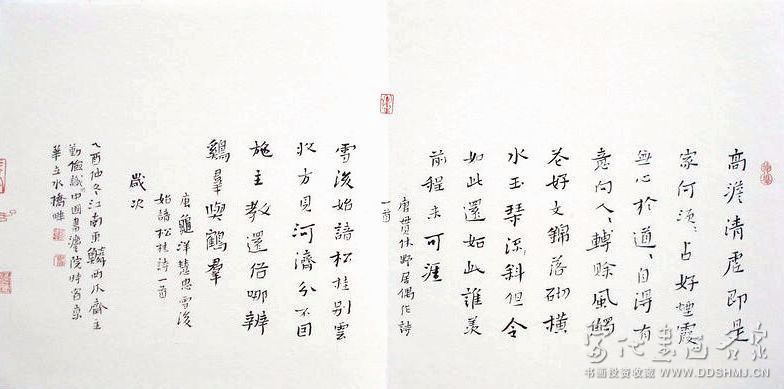 高澹清虛即是
家何須占好煙霞
無心於道、自得有
意向人、轉賒風觸
花好文錦落砌橫
水玉琴斜但令
如此還如此誰羨
前程未可涯
唐貫休野居偶作詩
一首
雪後始諳松桂別雲
收方見河濟分不因
施主教還俗哪辨
鷄羣與鶴羣
唐龜洋慧忠雪後
始諳松桂詩一首
歲次
乙酉仲冬江南東麟西爪齋主
勤儉識中國書法院時客京
華立水橋畔
当代书画名家
书画投资收藏 WWW.DDSHMJ.CN